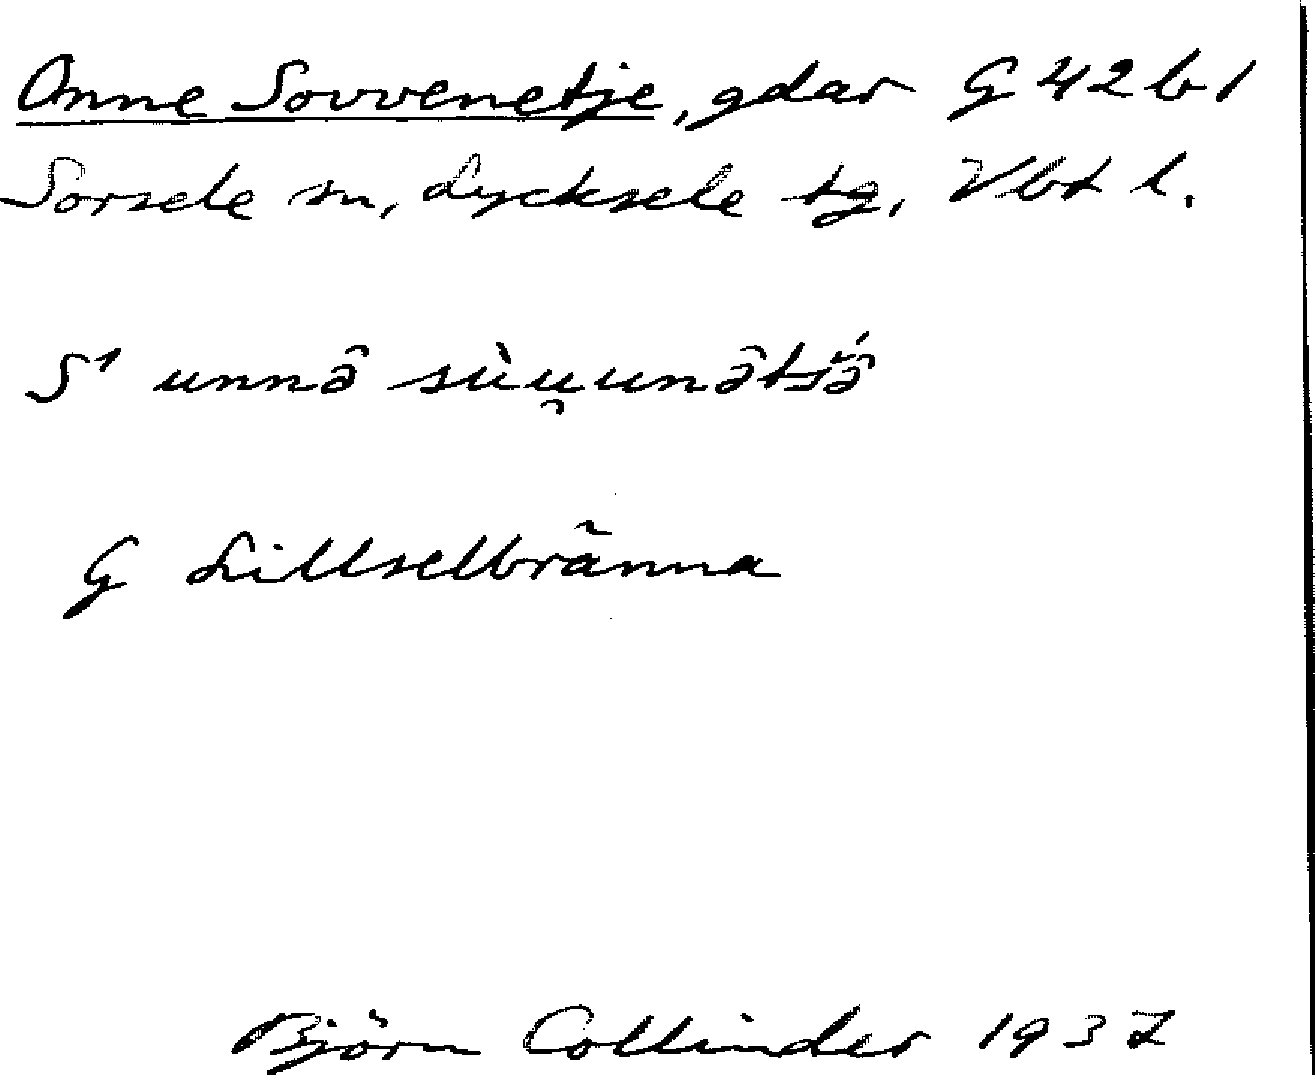 Onne Sovvenetje, gdar G 42 b 1
Sorsele sn, Lycksele tg, Vbt l.
S1 unnə̂
G Lillselbränna
Björn Collinder 1937